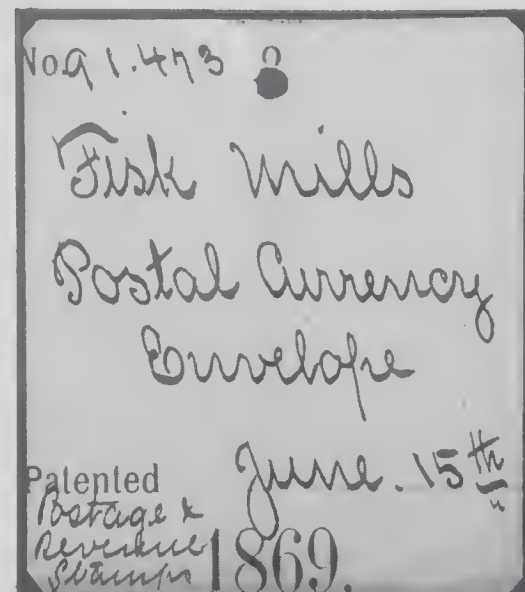 No. 91.473
Fisk Mills
Postal Currency
Envelope
Patented June. 15th
Postage &
Revenue
Stamps 1869.